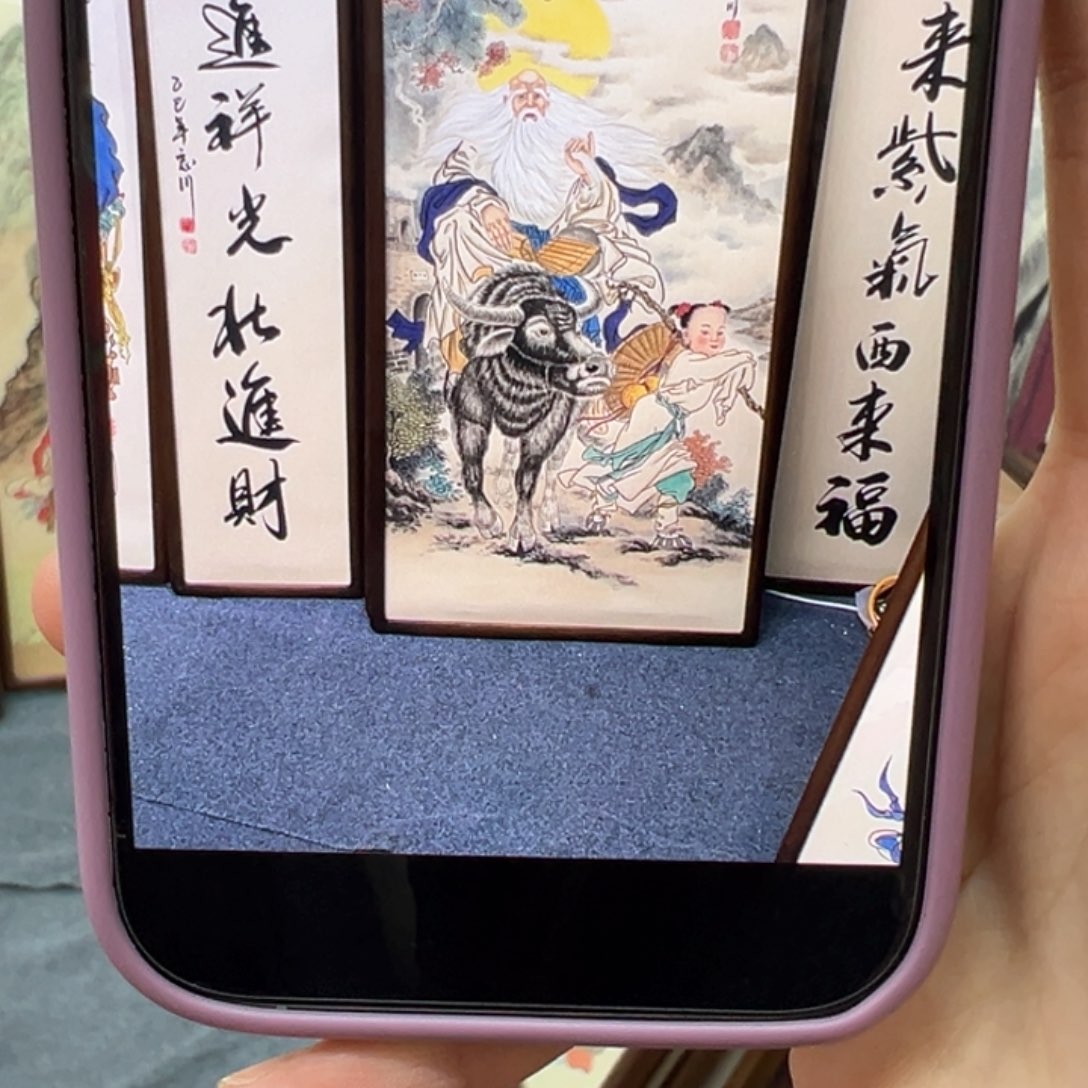 來紫氣西來福
進祥光北進財
乙巳年